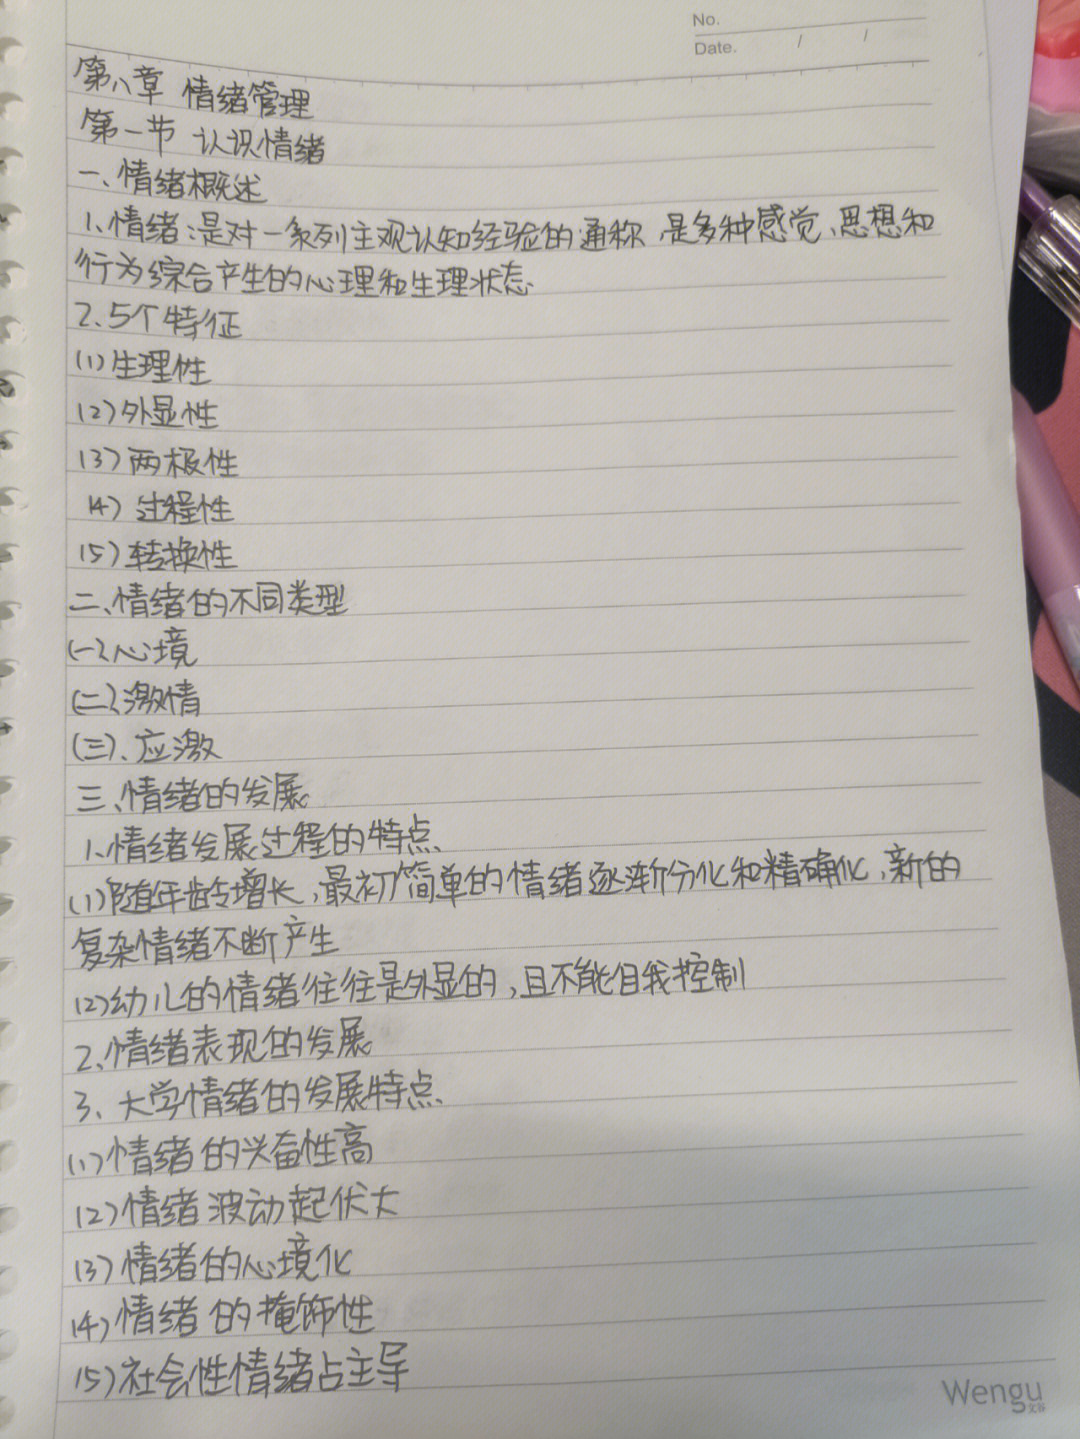 No.
Date. / /
第八章 情绪管理
第一节 认识情绪
一、情绪概述
1、情绪:是对一系列主观认知经验的通称,是多种感觉、思想和
行为综合产生的心理和生理状态.
2、5个特征
(1)生理性
(2)外显性
(3)两极性
(4)过程性
(5)转换性
二、情绪的不同类型
(一)、心境
(二)、激情
(三)、应激
三、情绪的发展
1、情绪发展过程的特点
(1)随年龄增长,最初简单的情绪逐渐分化和精确化,新的
复杂情绪不断产生
(2)幼儿的情绪往往是外显的,且不能自我控制
2、情绪表现的发展
3、大学情绪的发展特点
(1)情绪的兴奋性高
(2)情绪波动起伏大
(3)情绪的心境化
(4)情绪的掩饰性
(5)社会性情绪占主导
Wengu
文谷